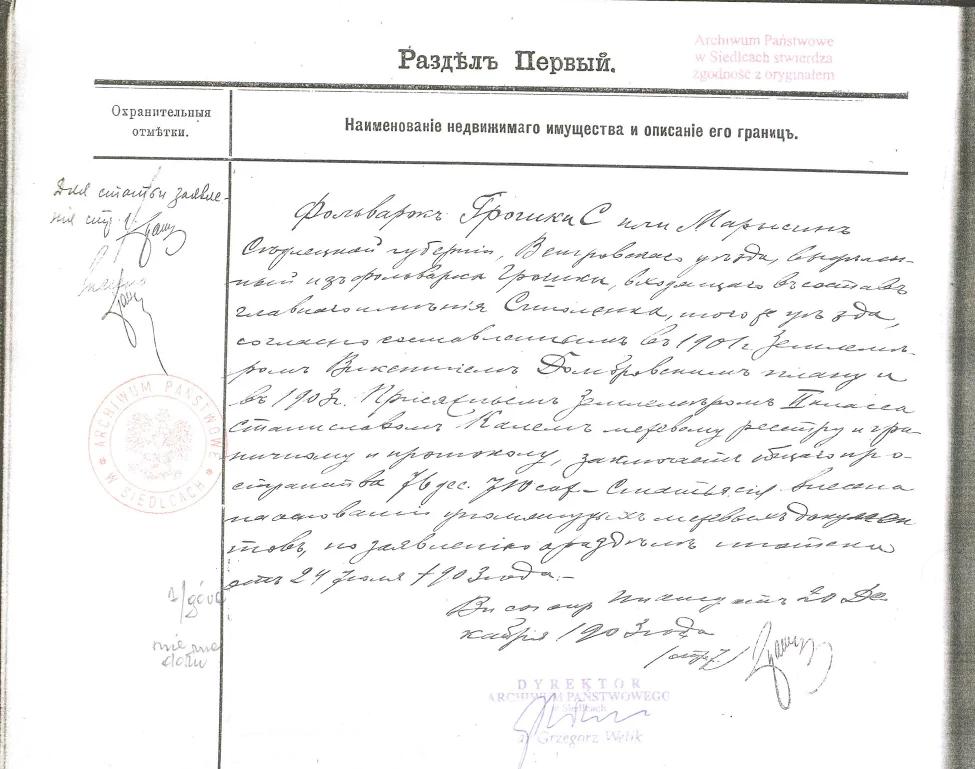 Раздѣлъ Первый.
Archiwum Państwowe
w Siedlcach stwierdza
zgodność z oryginałem
Охранительныя
отмѣтки.
Наименованіе недвижимаго имущества и описаніе его границъ.
Для статьи заявле-
нія стр.
Фольваркъ Грошки С или Марысинъ
Сѣдлецкой губерніи, Венгровскаго уѣзда, выдѣлен-
ный изъ фольварка Грошки, входящаго въ составъ
главнаго имѣнія, того же уѣзда,
согласно составленнымъ въ 1901 г. Землемѣ-
ромъ Викентіемъ Домбровскимъ плану и
въ 1903 г. Присяжнымъ Землемѣромъ II класса
Станиславомъ межевому реестру и гра-
ничному и протоколу, заключаетъ общаго про-
странства 76 дес. Статья сія внесена
на основаніи упомянутыхъ межевыхъ докумен
товъ, по заявленію о раздѣлѣ ипотеки
отъ 24 Іюля 1903 года.-
отъ 20 Де
кабря 1903 года
ARCHIWUM PAŃSTWOWE
W SIEDLCACH
nie ma
DYREKTOR
ARCHIWUM PAŃSTWOWEGO
w Siedlcach
Grzegorz Welik